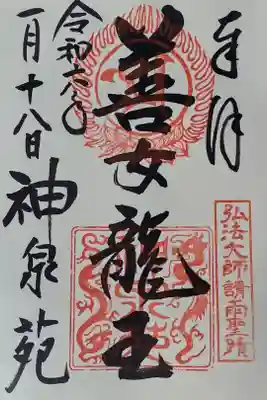 奉拝
弘法大師請雨聖蹟
善女龍王
令和六年
一月十八日
神泉苑